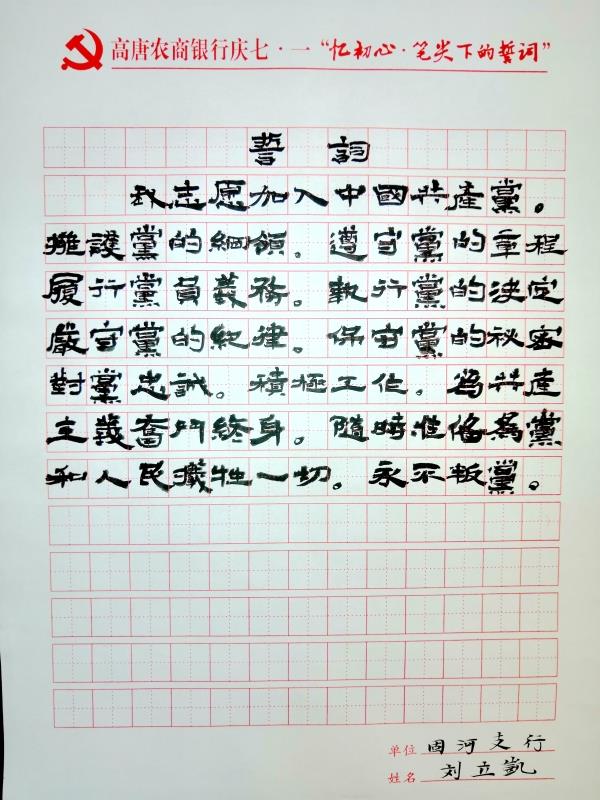 高唐农商银行庆七·一“忆初心·笔尖下的誓词”
誓詞
我志愿加入中國共產黨。
擁護黨的綱領。遵守黨的章程
履行黨員義務。執行黨的決定
嚴守黨的紀律。保守黨的秘密
對黨忠誠。積極工作。為共產
主義奮鬥終身。隨時准俻為黨
和人民犧牲一切。永不叛黨。
单位 固河支行
姓名 刘立凯